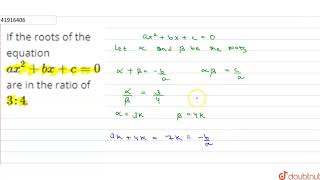 41916406
If the roots of the
equation
ax² + bx + c = 0
are in the ratio of
3:4
ax² + bx + c = 0
Let α and β be the roots
α + β = -b/a αβ = c/a
α/β = 3/4
α = 3k β = 4k
3k + 4k = 7k = -b/a
doubtnut